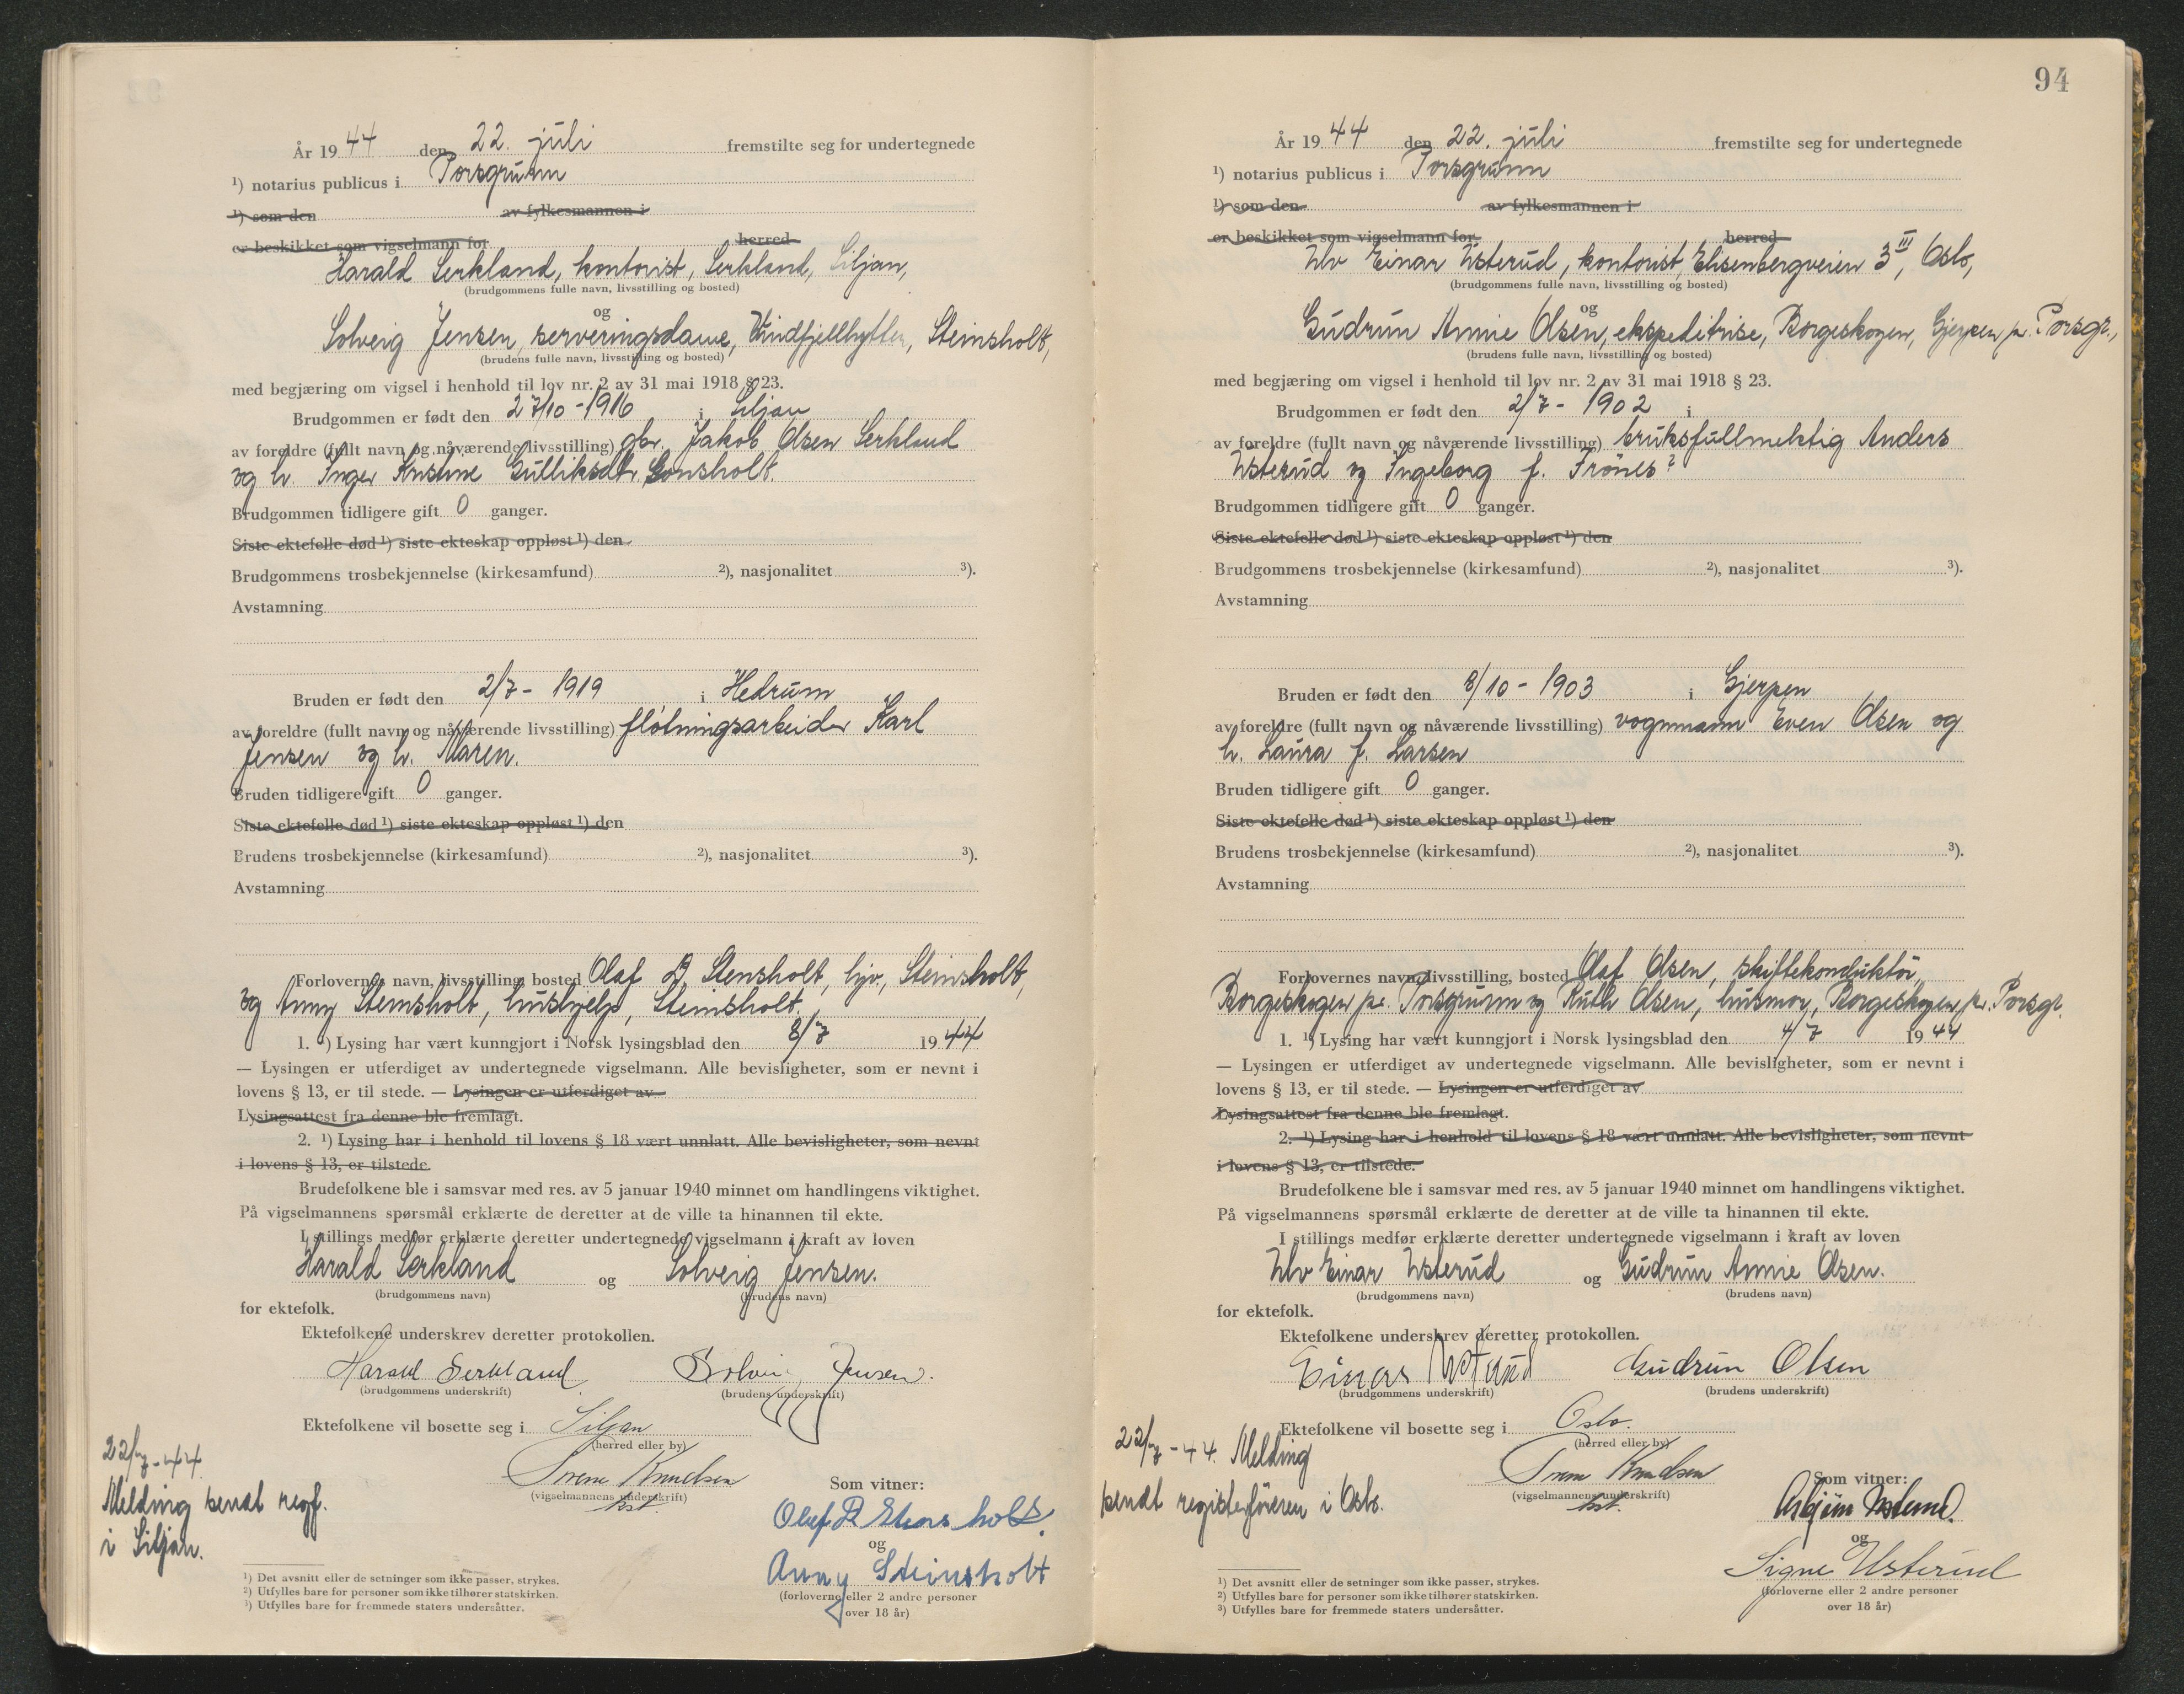 År 19 44 den 22. juli fremstilte seg for undertegnede
¹) notarius publicus i Porsgrunn
¹) som den av fylkesmannen i
er beskikket som vigselmann for herred
Harald Serkland, kontorist, Serkland, Siljan,
(brudgommens fulle navn, livsstilling og bosted)
og
Solveig Jensen, serveringsdame, Vindfjellhytten, Steinsholt,
(brudens fulle navn, livsstilling og bosted)
med begjæring om vigsel i henhold til lov nr. 2 av 31 mai 1918 § 23.
Brudgommen er født den 27/10 - 1916 i Siljan
av foreldre (fullt navn og nåværende livsstilling) gbr. Jakob Olsen Serkland
og h. Inger Kristine Gulliksdtr. Gonsholt.
Brudgommen tidligere gift 0 ganger.
Siste ektefelle død ¹) siste ekteskap oppløst ¹) den
Brudgommens trosbekjennelse (kirkesamfund) ²), nasjonalitet ³).
Avstamning
Bruden er født den 2/7 - 1919 i Hedrum
av foreldre (fullt navn og nåværende livsstilling) fløtningsarbeider Karl
Jensen og h. Maren.
Bruden tidligere gift 0 ganger.
Siste ektefelle død ¹) siste ekteskap oppløst ¹) den
Brudens trosbekjennelse (kirkesamfund) ²), nasjonalitet ³).
Avstamning
Forlovernes navn, livsstilling, bosted Olaf B. Stensholt, Steinsholt,
og Anny Steinsholt, hushjelp, Steinsholt.
1. ¹) Lysing har vært kunngjort i Norsk lysingsblad den 8/7 19 44
— Lysingen er utferdiget av undertegnede vigselmann. Alle bevisligheter, som er nevnt i
lovens § 13, er til stede. — Lysingen er utferdiget av
Lysingsattest fra denne ble fremlagt.
2. ¹) Lysing har i henhold til lovens § 18 vært unnlatt. Alle bevisligheter, som nevnt
i lovens § 13, er tilstede.
Brudefolkene ble i samsvar med res. av 5 januar 1940 minnet om handlingens viktighet.
På vigselmannens spørsmål erklærte de deretter at de ville ta hinannen til ekte.
I stillings medfør erklærte deretter undertegnede vigselmann i kraft av loven
Harald Serkland og Solveig Jensen.
(brudgommens navn) (brudens navn)
for ektefolk.
Ektefolkene underskrev deretter protokollen.
Harald Serkland Solveig Jensen.
(brudgommens underskrift) (brudens underskrift)
Ektefolkene vil bosette seg i Siljan
(herred eller by)
Knudsen
(vigselmannens underskrift)
Som vitner:
Olaf B Stensholt.
og
Anny Steinsholt
(forloverne eller 2 andre personer
over 18 år)
22/7 - 44
Melding sendt regf.
i Siljan.
¹) Det avsnitt eller de setninger som ikke passer, strykes.
²) Utfylles bare for personer som ikke tilhører statskirken.
³) Utfylles bare for fremmede staters undersåtter.
94
År 19 44 den 22. juli fremstilte seg for undertegnede
¹) notarius publicus i Porsgrunn
¹) som den av fylkesmannen i
er beskikket som vigselmann for herred
Ulv Einar Usterud, kontorist, Elisenbergveien 3 III, Oslo,
(brudgommens fulle navn, livsstilling og bosted)
og
Gudrun Annie Olsen, ekspeditrise, Borgeskogen, Gjerpen pr. Porsgr.,
(brudens fulle navn, livsstilling og bosted)
med begjæring om vigsel i henhold til lov nr. 2 av 31 mai 1918 § 23.
Brudgommen er født den 2/7 - 1902 i
av foreldre (fullt navn og nåværende livsstilling) bruksfullmektig Anders
Usterud og Ingeborg f. Frönes?
Brudgommen tidligere gift 0 ganger.
Siste ektefelle død ¹) siste ekteskap oppløst ¹) den
Brudgommens trosbekjennelse (kirkesamfund) ²), nasjonalitet ³).
Avstamning
Bruden er født den 8/10 - 1903 i Gjerpen
av foreldre (fullt navn og nåværende livsstilling) vognmann Even Olsen og
h. Laura f. Larsen
Bruden tidligere gift 0 ganger.
Siste ektefelle død ¹) siste ekteskap oppløst ¹) den
Brudens trosbekjennelse (kirkesamfund) ²), nasjonalitet ³).
Avstamning
Forlovernes navn, livsstilling, bosted Olaf Olsen, skiftekonduktör,
Borgeskogen pr. Porsgrunn og Ruth Olsen, husmor, Borgeskogen pr. Porsgr.
1. ¹) Lysing har vært kunngjort i Norsk lysingsblad den 4/7 19 44
— Lysingen er utferdiget av undertegnede vigselmann. Alle bevisligheter, som er nevnt i
lovens § 13, er til stede. — Lysingen er utferdiget av
Lysingsattest fra denne ble fremlagt.
2. ¹) Lysing har i henhold til lovens § 18 vært unnlatt. Alle bevisligheter, som nevnt
i lovens § 13, er tilstede.
Brudefolkene ble i samsvar med res. av 5 januar 1940 minnet om handlingens viktighet.
På vigselmannens spørsmål erklærte de deretter at de ville ta hinannen til ekte.
I stillings medfør erklærte deretter undertegnede vigselmann i kraft av loven
Ulv Einar Usterud og Gudrun Annie Olsen.
(brudgommens navn) (brudens navn)
for ektefolk.
Ektefolkene underskrev deretter protokollen.
Einar Usterud Gudrun Olsen
(brudgommens underskrift) (brudens underskrift)
Ektefolkene vil bosette seg i Oslo.
(herred eller by)
Knudsen
(vigselmannens underskrift)
Som vitner:
Usterud.
og
Signe Usterud
(forloverne eller 2 andre personer
over 18 år)
22/7 - 44. Melding
sendt registerföreren i Oslo.
¹) Det avsnitt eller de setninger som ikke passer, strykes.
²) Utfylles bare for personer som ikke tilhører statskirken.
³) Utfylles bare for fremmede staters undersåtter.